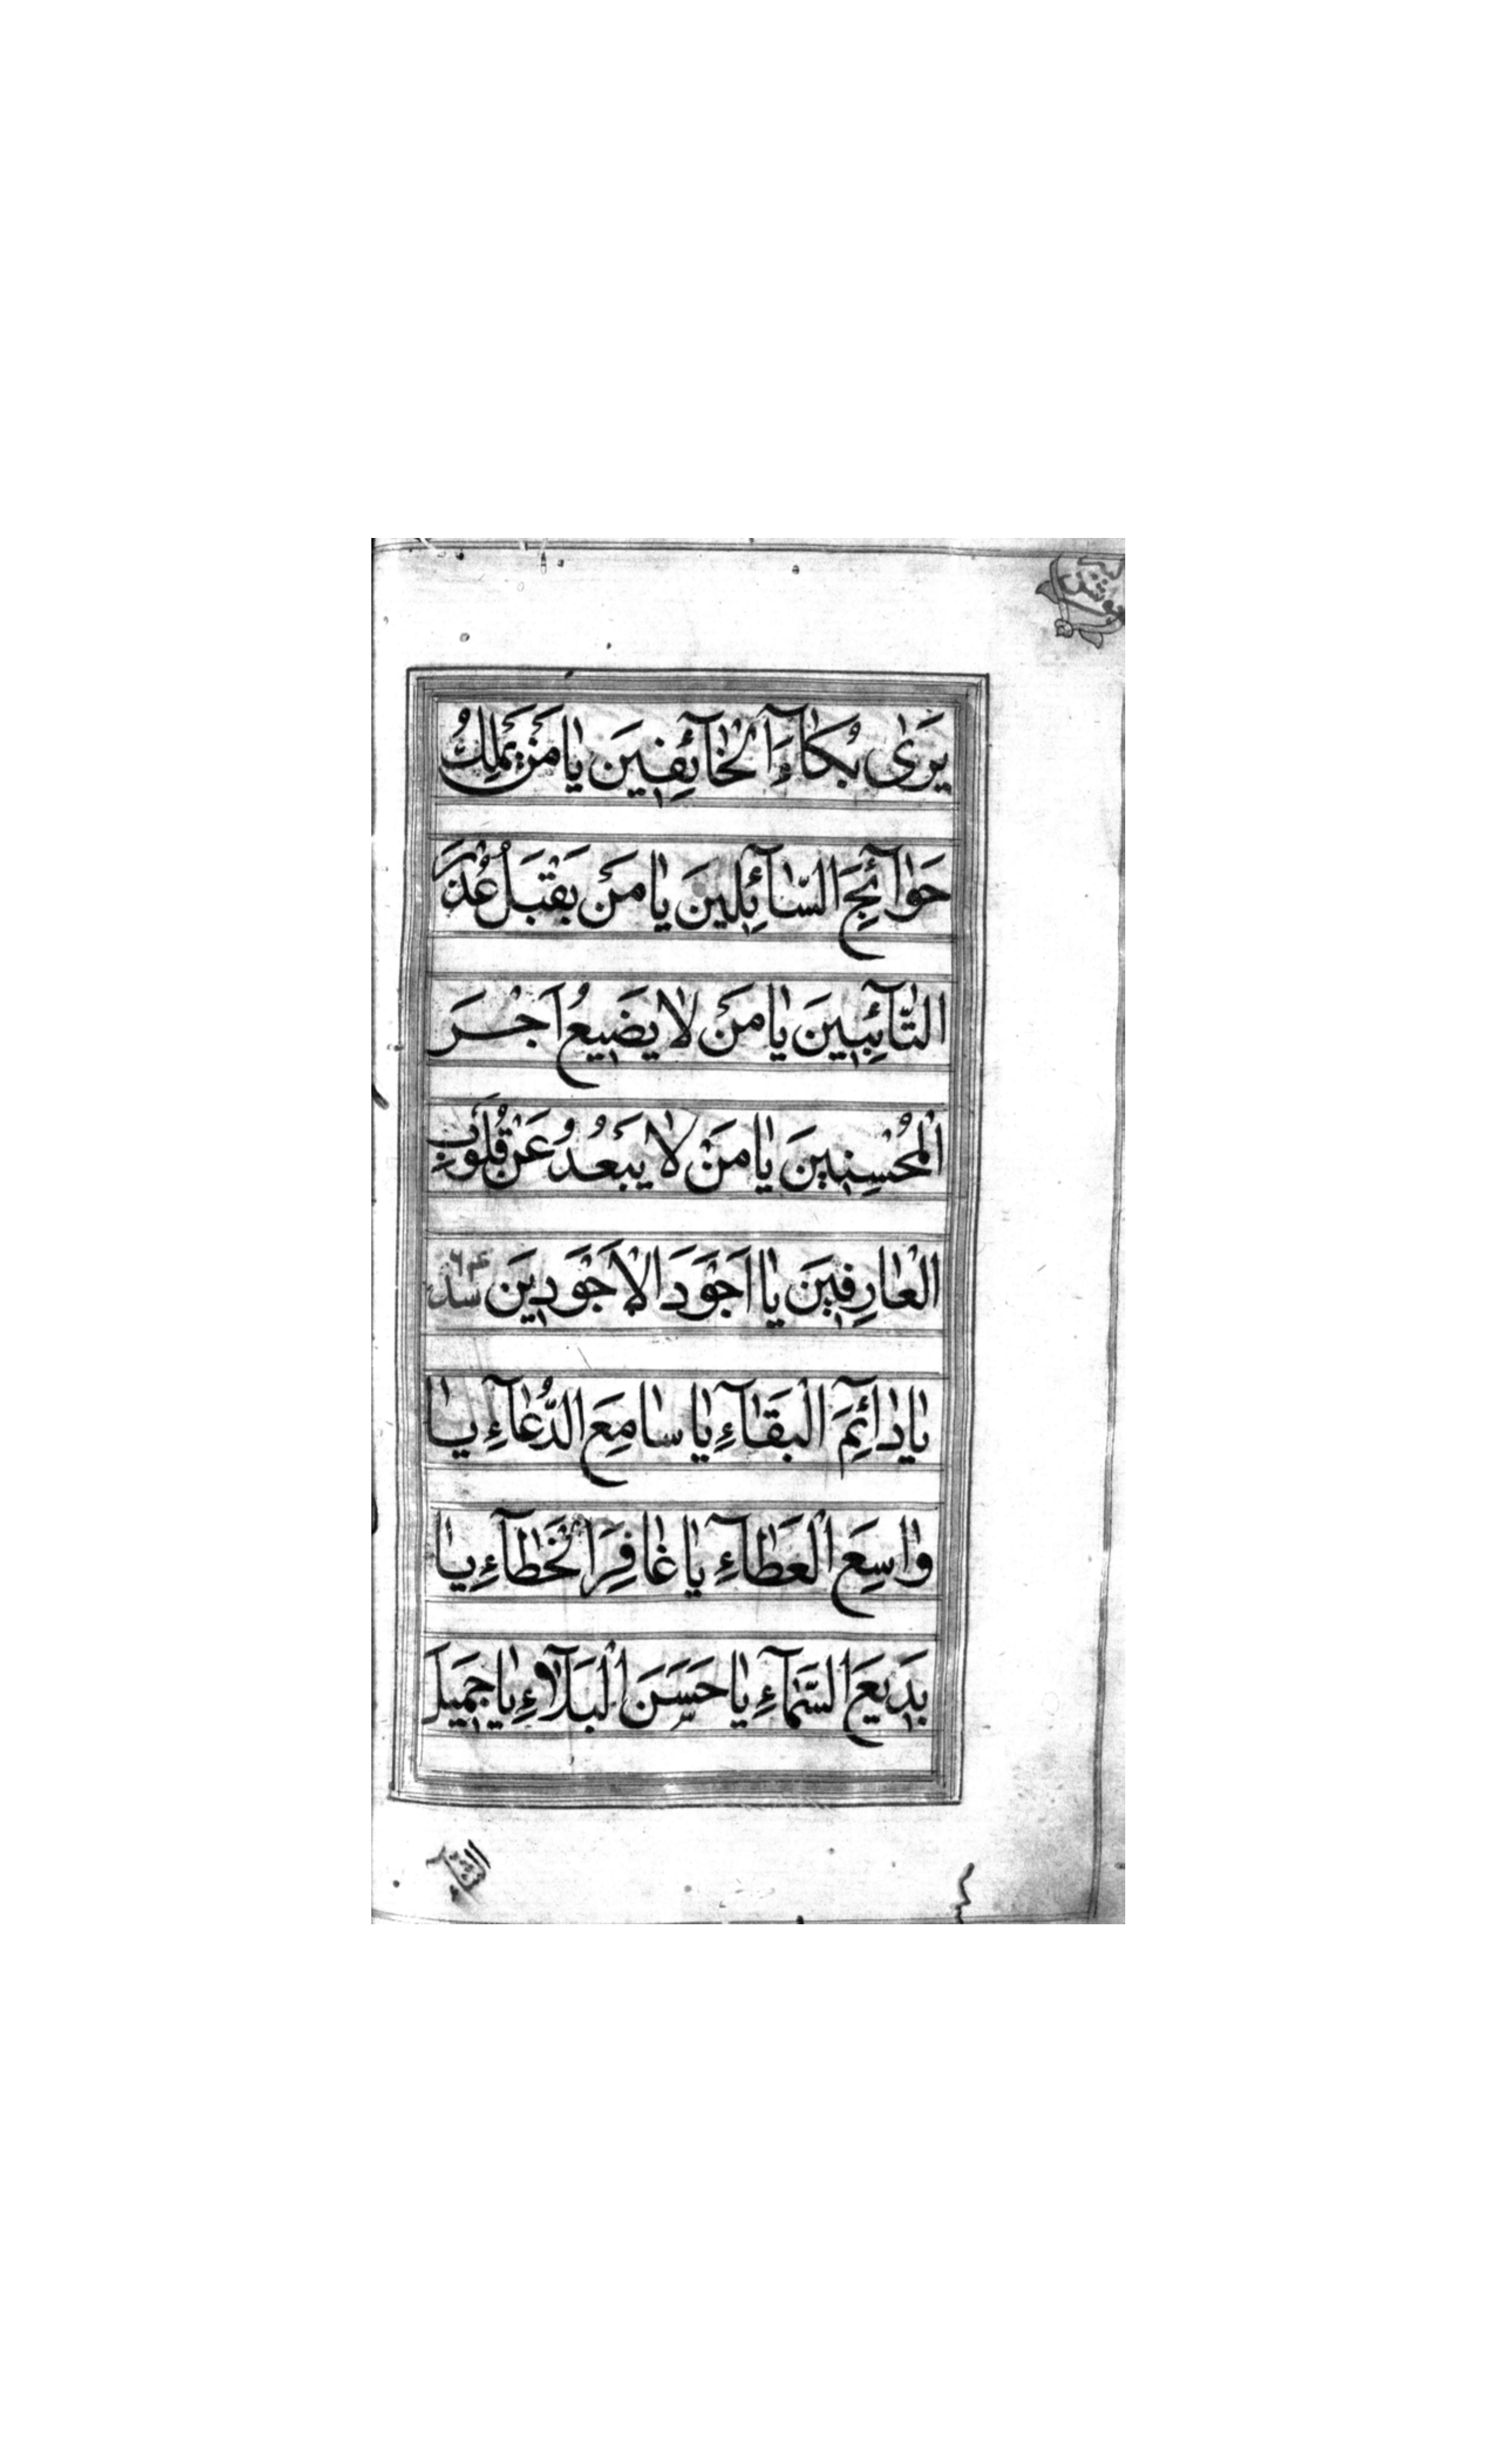 يَرىٰ بُكٰآءَ الْخٰآئِفِينَ يٰا مَنْ يَمْلِكُ
حَوٰآئِجَ السّٰآئِلِينَ يٰا مَنْ يَقْبَلُ عُذْرَ
التّٰآئِبِينَ يٰا مَنْ لٰا يَضيعُ اَجْرَ
الْمُحْسِنِينَ يٰا مَنْ لٰا يَبْعُدُ عَنْ قُلُوبِ
الْعٰارِفِينَ يٰا اَجْوَدَ الْاَجْوَدِينَ
يٰا دٰآئِمَ الْبَقٰآءِ يٰا سٰامِعَ الدُّعٰآءِ يٰا
وٰاسِعَ الْعَطٰآءِ يٰا غٰافِرَ الْخَطٰآءِ يٰا
بَدِيعَ السَّمٰآءِ يٰا حَسَنَ الْبَلٰآءِ يٰا جَمِيلَ